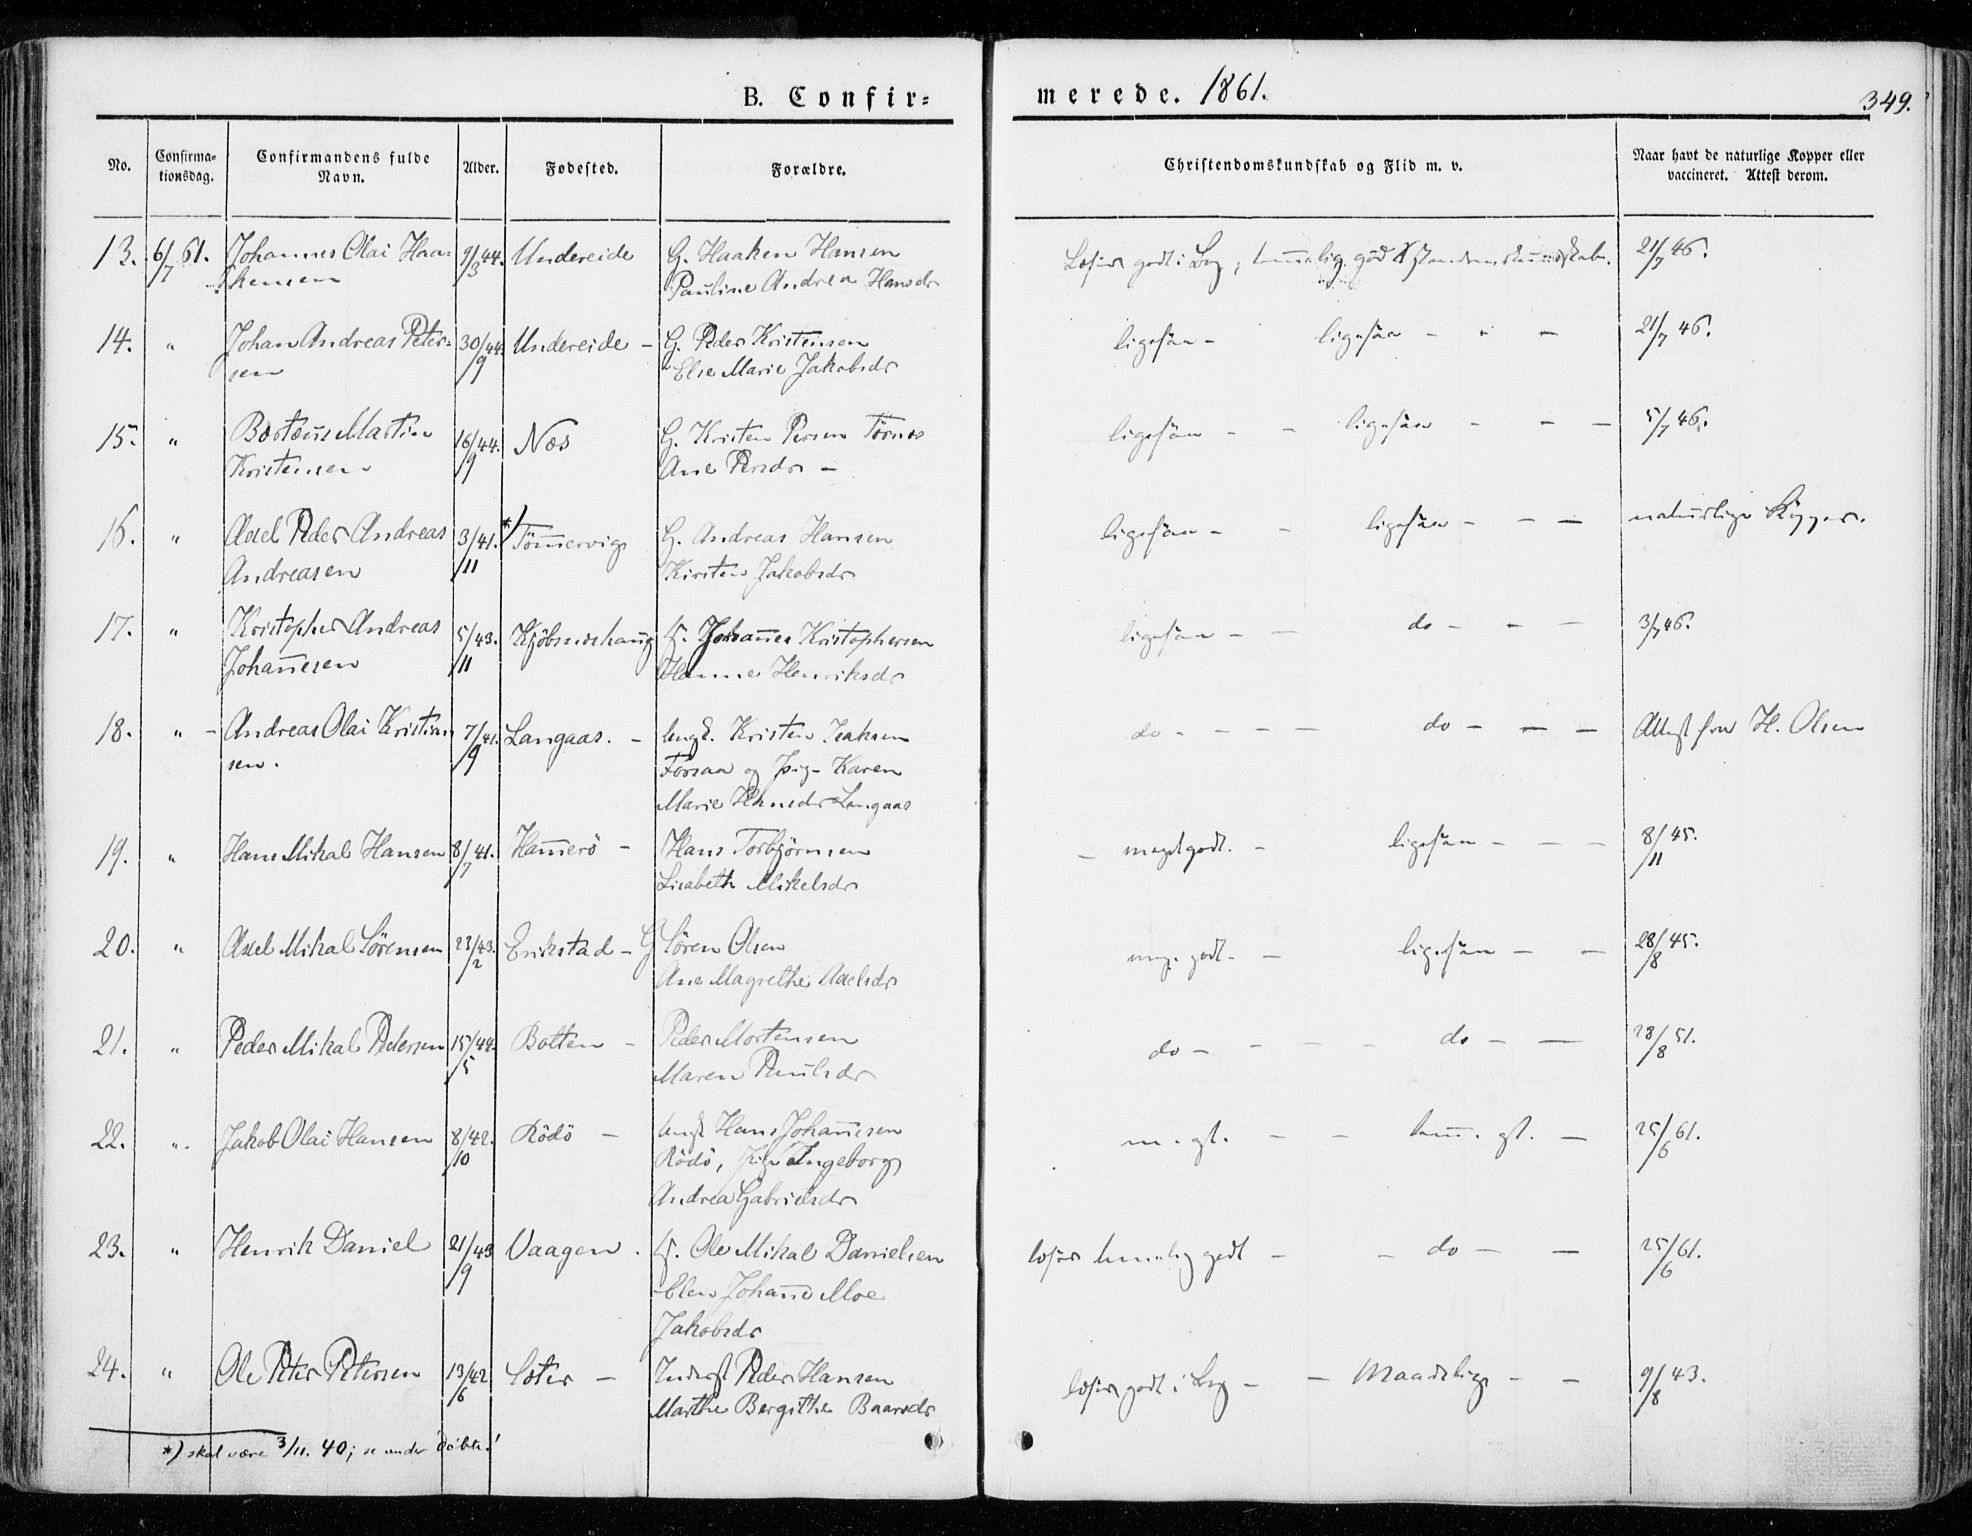 B. Confir=
merede. 1861.
349.
No.
Confirma=
tionsdag.
Confirmandens fulde
Navn.
Alder.
Fødested.
Forældre.
Christendomskundskab og Flid m. v.
Naar havt de naturlige Kopper eller
vaccineret. Attest derom.
13. 6/7 61. Johannes Olai Haa= 9/3 44. Undereide G. Haaken Hansen Læser godt i Bog, 21/7 46.
kensen Pauline Andrea Hansdr
14. " Johan Andreas Peter= 30/9 44. Undereide – G. Peder Kristensen ligesaa – ligesaa – – – 21/7 46.
sen Else Marie Jakobsdr
15. " Martin 16/9 44. Næs G. Kristen Persen Tørnes ligesaa – – ligesaa – – – 5/7 46.
Kristensen Ane Persdr –
16. " Axel Peder Andreas 3/11 41. *) Tömmervig G. Andreas Hansen ligesaa – – ligesaa – – – naturlige Kopper.
Andreasen Kirsten Jakobsdr
17. " Kristopher Andreas 5/11 43. Kjöbsneshaug Johannes Kristophersen ligesaa – – do – – – 3/7 46.
Johannesen Hanna Henriksdr
18. " – Andreas Olai Kristian 7/9 41. Langaas. – Ungk. Kristen Isaksen do – – – – do – – – Attest fra H. Olsen
sen. Forsaa og Pig. Karen
Marie Hansdr Langaas
19. " Hans Mikal Hansen 8/7 41. Hammerö – Hans Torbjörnsen – meget godt. – ligesaa – – – 8/11 45.
Lisabeth Mikelsdr
20. " Axel Mikal Sörensen 23/2 43. Erikstad – G Sören Olsen meg. godt – – ligesaa – – 28/8 45.
Ane Magrethe Axelsdr
21. " Peder Mikal Pedersen 15/5 44. Botten – Peder Mortensen do – – – – do – – 28/8 51.
Maren Paulsdr
22. " Jakob Olai Hansen 8/10 42. Rödö – Ungk Hans Johannesen m. gt. – – tem. gt. – 25/6 61.
Rödö, Pige Ingeborg
Andrea Gabrielsdr
23. " Henrik Daniel 21/9 43 Vaagen . Ole Mikal Danielsen læser temmelig godt – – do – – 25/6 61.
Elen Johanna Moe
Jakobsdr
24. " Ole Peter Petersen 13/6 42 Sæter – Inderst Peder Hansen læser godt i Bog – – Maadelig – – 9/8 43.
Marthe Bergithe Baarsdr
*) skal være 3/11. 40; se under "döbte"!